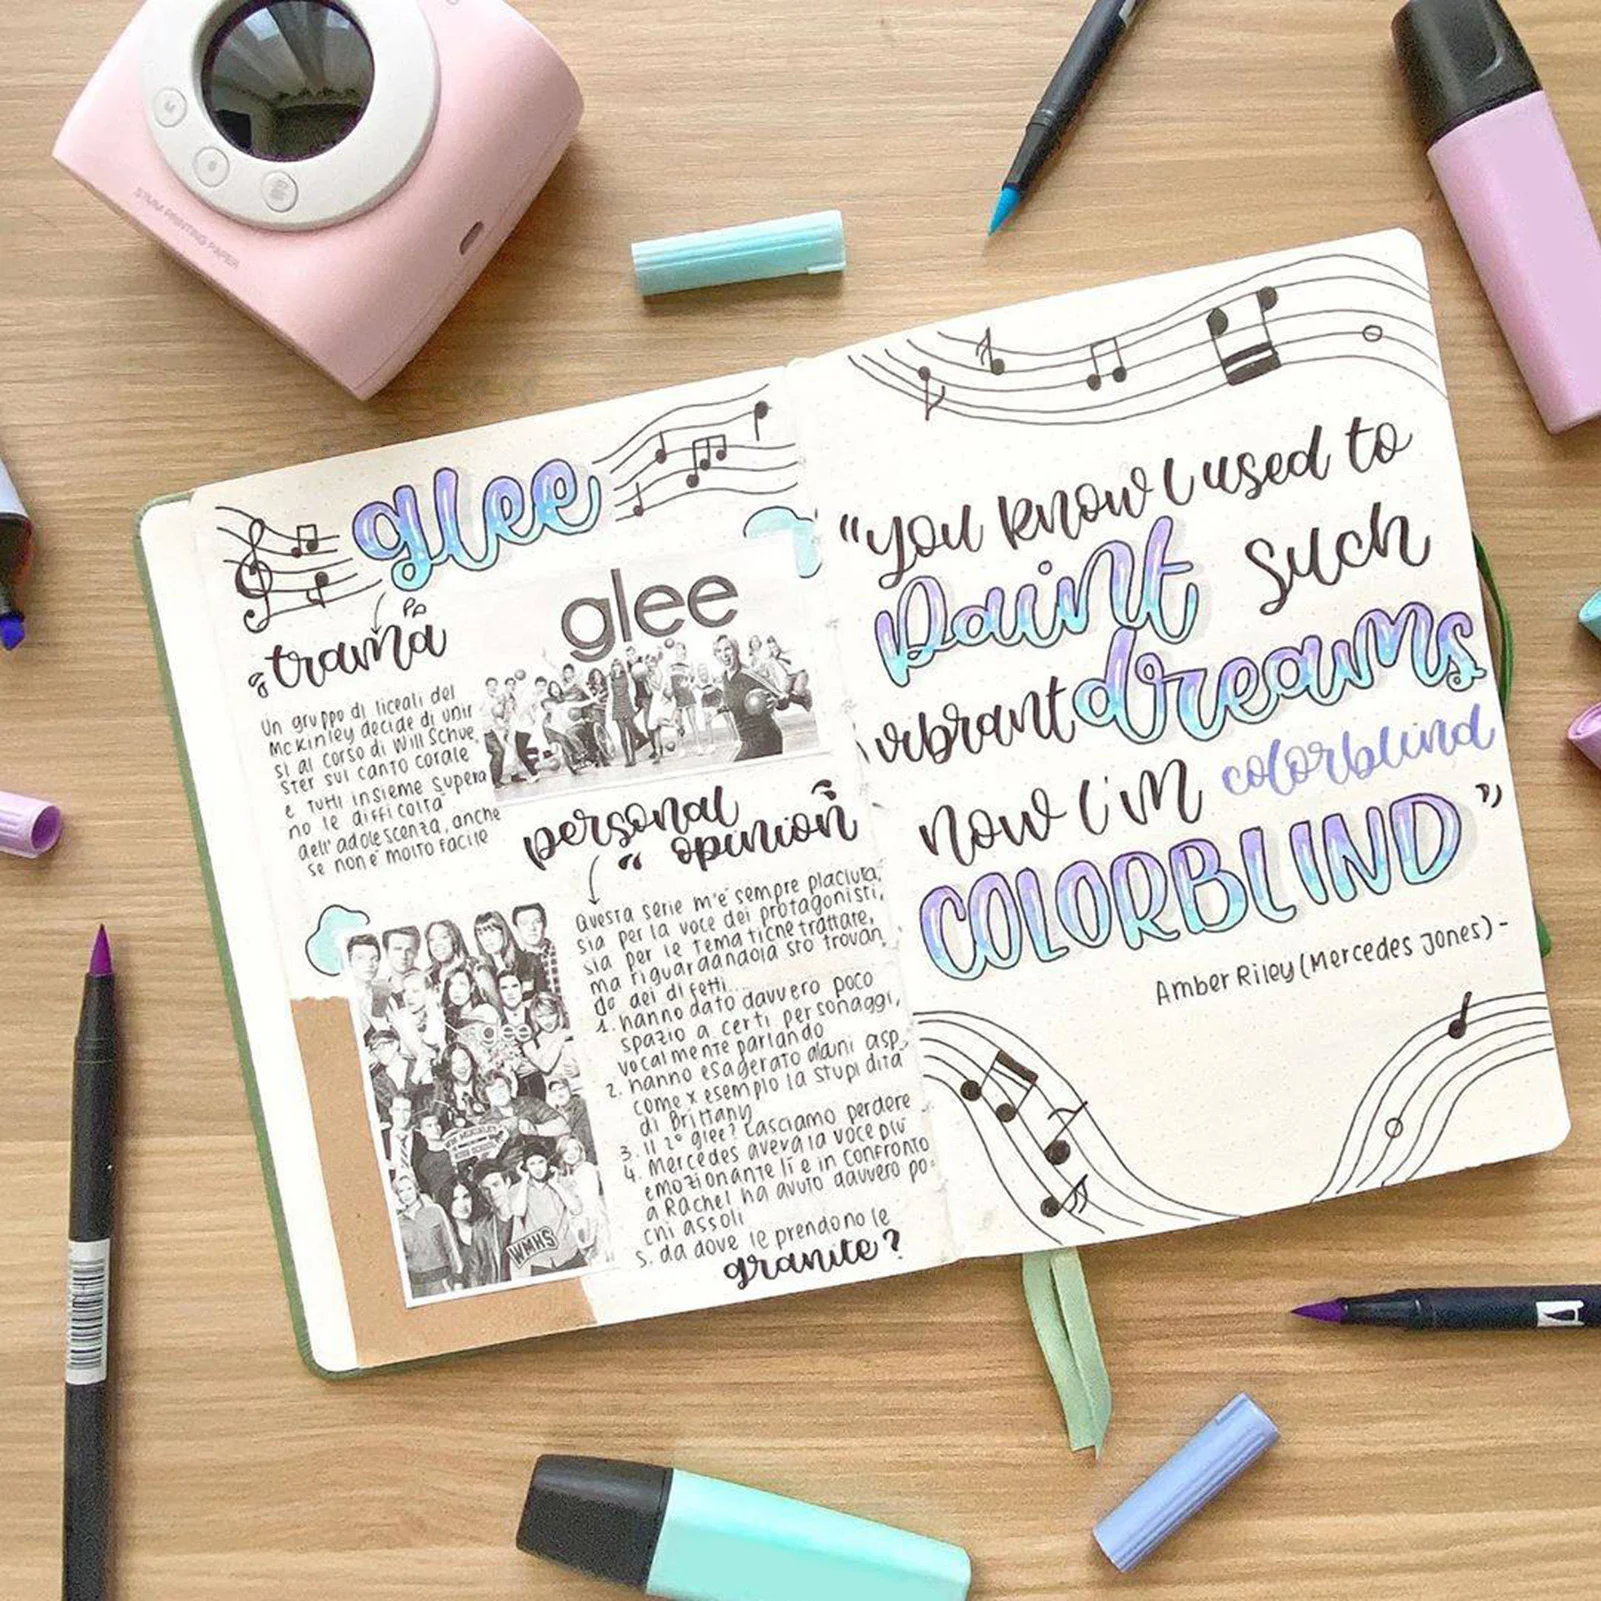 57MM PRINTING PAPER
M
glee
"trama"
Un gruppo di liceali del
McKinley decide di unir
si al corso di Will Schue
ster sul canto corale
e tutti insieme supera
no le difficoltà
dell'adolescenza, anche
se non è molto facile
glee
personal
"opinion"
Questa serie m'è sempre piaciuta,
sia per la voce dei protagonisti,
sia per le tematiche trattate,
ma riguardandola sto trovan
do dei difetti...
1. hanno dato davvero poco
spazio a certi personaggi,
vocalmente parlando
2. hanno esagerato alcuni asp.
come x esempio la stupidità
di Brittany
3. Il 2° glee? Lasciamo perdere
4. Mercedes aveva la voce più
emozionante lì e in confronto
a Rachel ha avuto davvero po-
chi assoli
5. da dove le prendono le
granite?
glee
WMHS
"you know I used to
paint such
vibrant dreams
now I'm colorblind
COLORBLIND"
Amber Riley (Mercedes Jones) -